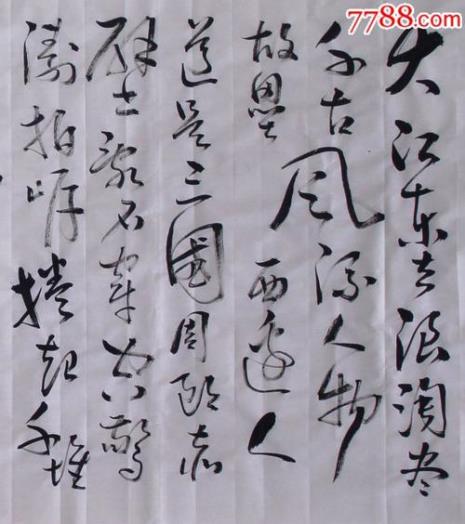 7788.com
大江东去浪淘尽
千古风流人物
故壘西邊人
道是三國周郎赤
壁亂石穿空驚
濤拍岸捲起千堆